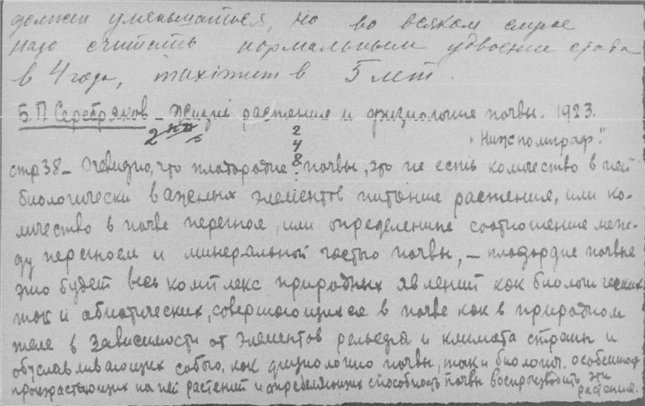 должен уменьшаться, но во всяком случае
надо считать нормальным удвоение стада
в 4 года, maximum в 5 лет.
Б. П. Серебряков – Жизнь растения и физиология почвы. 1923.
2
2
4
8
"Нижполиграф."
стр 38 – Очевидно, что плодородие почвы, это не есть количество в ней
биологически важных элементов питания растения, или ко-
личество в почве перегноя, или определение соотношение меж-
ду перегноем и минеральной частью почвы, – плодородие почвы
это будет весь комплекс природных явлений как биологических
так и абиотических, совершающихся в почве как в природном
теле в зависимости от элементов рельефа и климата страны и
обуславливающих собою, как физиологию почвы, так и биология. особенност
произрастающих на ней растений и определяющих способность почвы воспроизводить эти
растения.